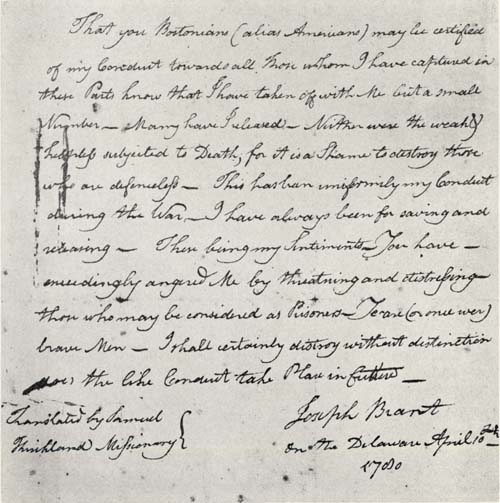 That you Bostonians (alias Americans) may be certified
of my Conduct towards all those whom I have captured in
these Parts know that I have taken off with Me but a small
Number — Many have I released — Neither were the weak &
helpless subjected to Death, for it is a Shame to destroy those
who are defenceless — This has been uniformly my Conduct
during the War — I have always been for saving and
releasing — These being my Sentiments — You have —
exceedingly angered Me by threatning and distressing
those who may be considered as Prisoners — Ye are (or once were)
brave Men — I shall certainly destroy without distinction
does the like Conduct take Place in future —
Joseph Brant
on the Delaware April 10th
1780
Translated by Samuel
Missionary